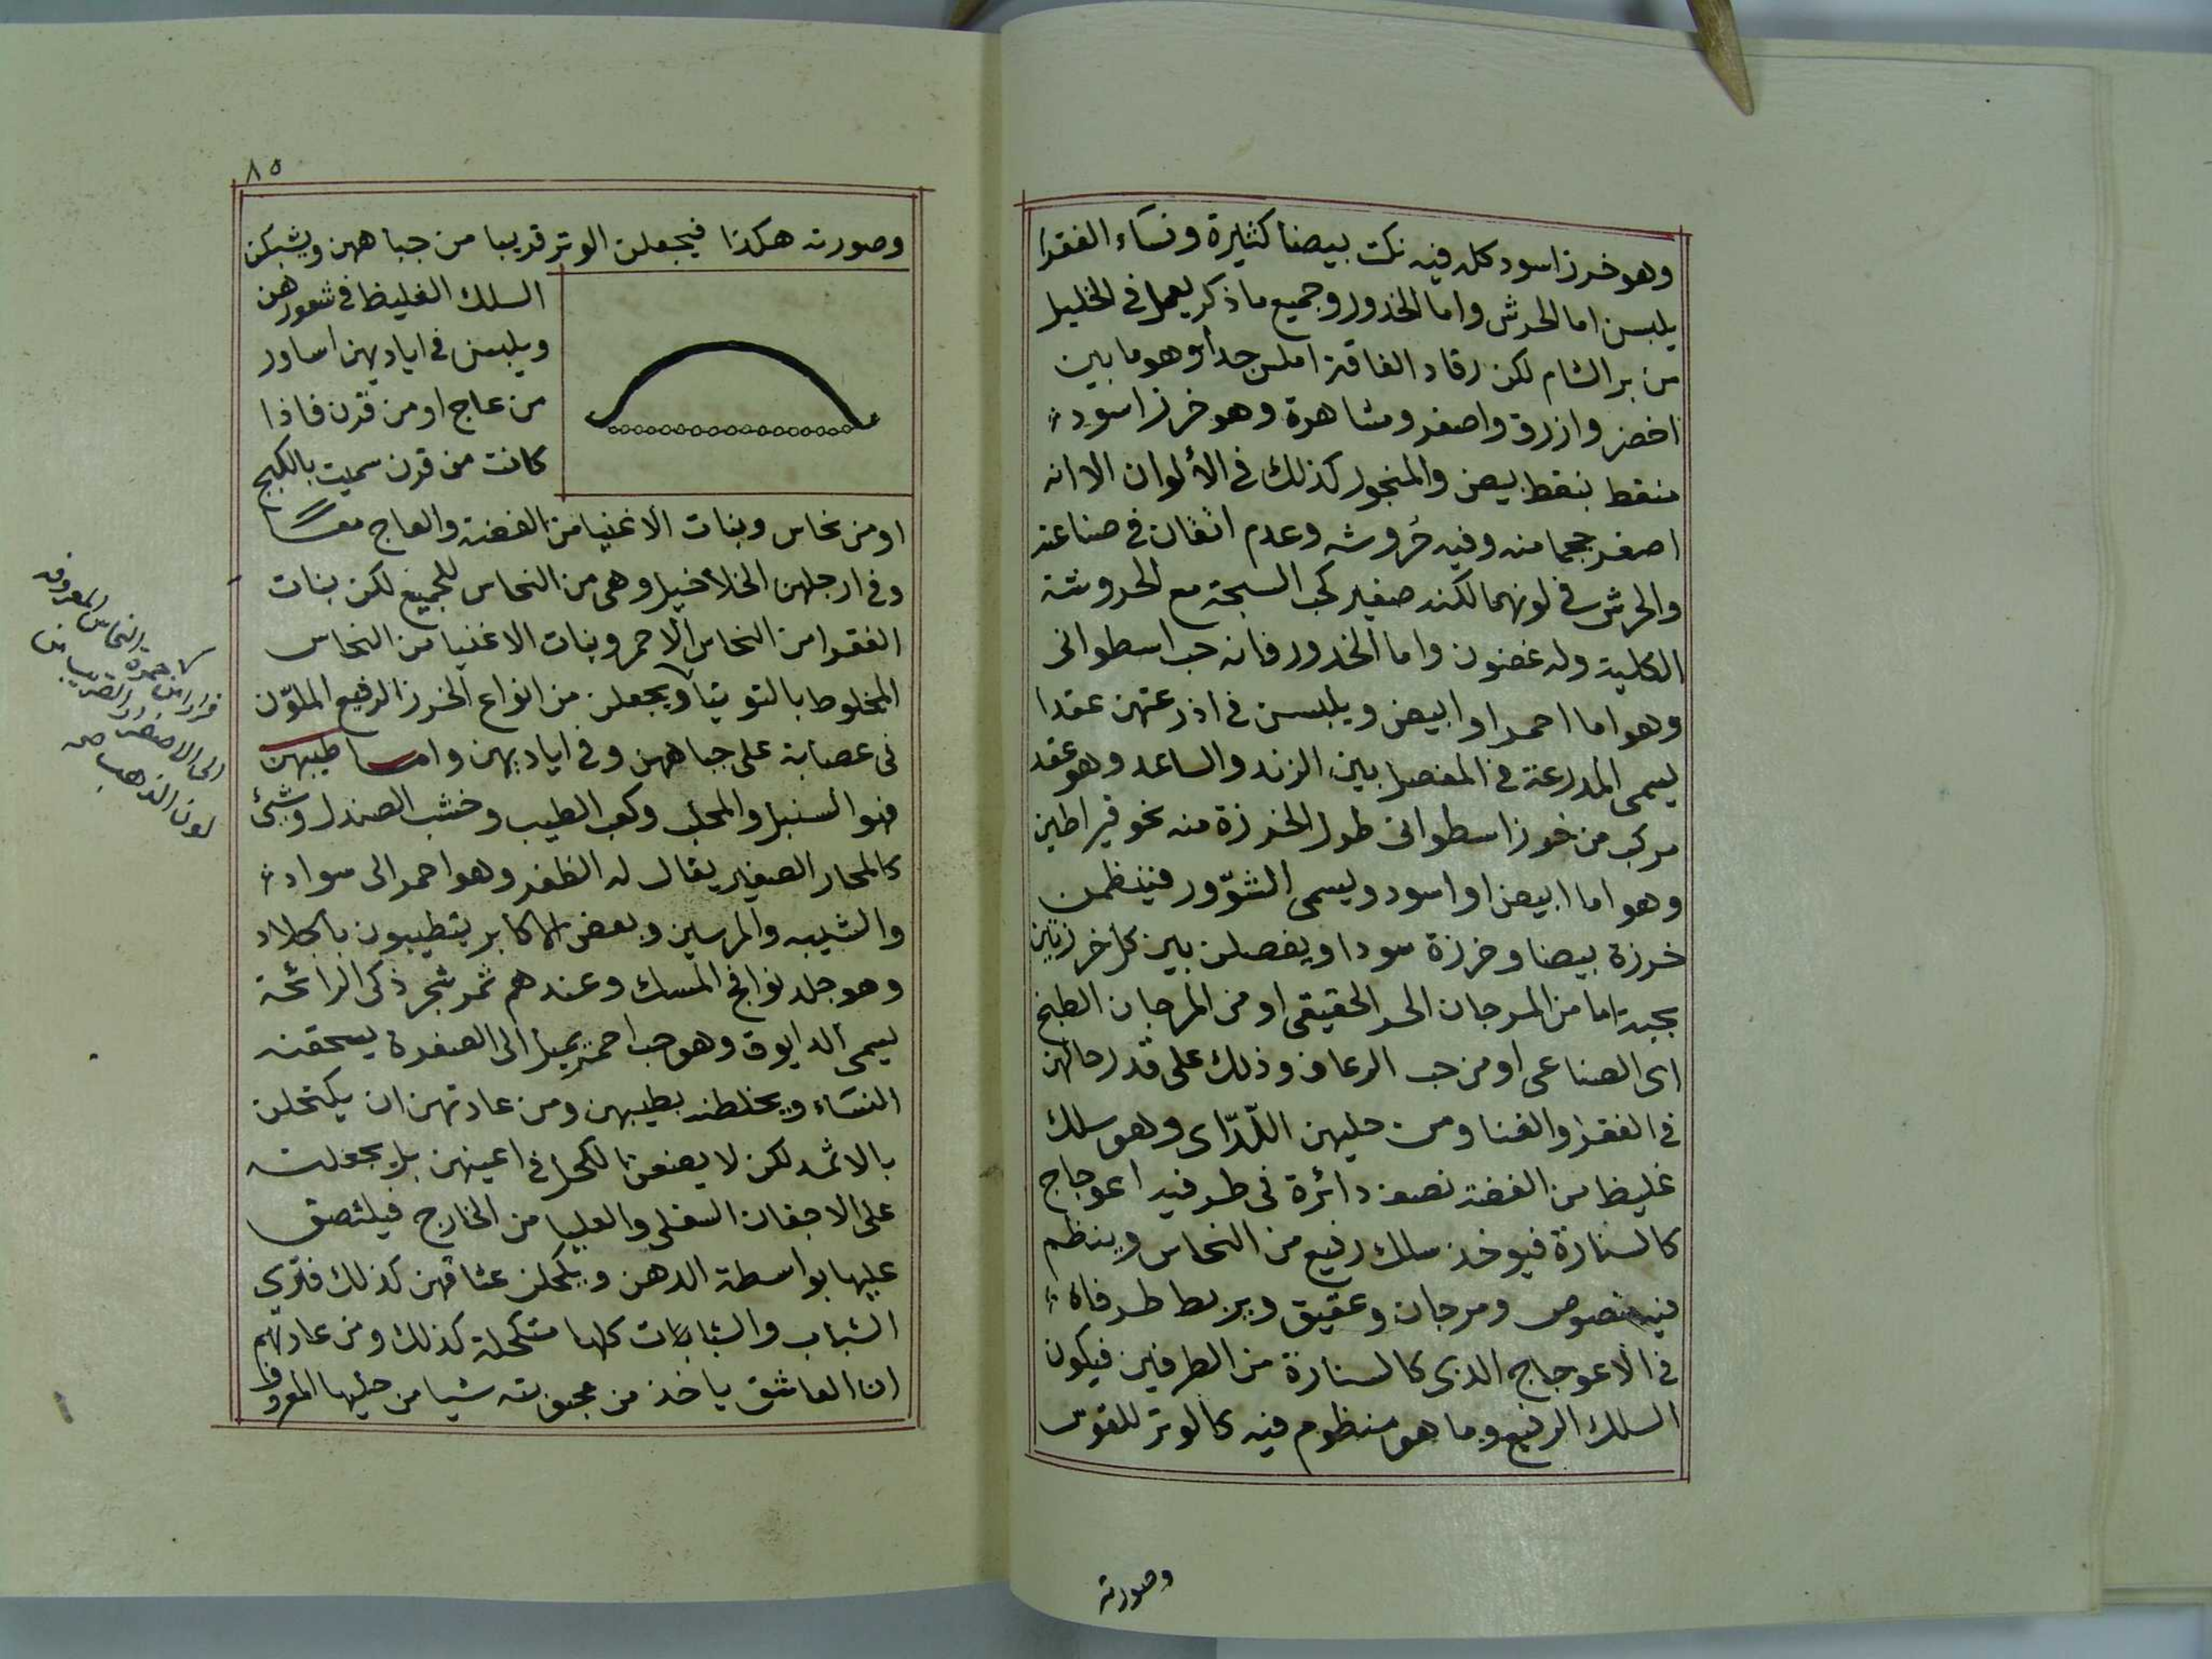 وهو خرز اسود كله فيه نكت بيضا كثيرة ونساء الفقرا
يلبسن اما الحرش واما الخدور وجميع ما ذكر يعمل في الخليل
من بر الشام لكن رقاد الفاقة املس جدا وهو ما بين
اخضر وازرق واصفر ومشاهرة وهو خرز اسود
منقط بنقط بيض والمنجور كذلك في الألوان الا انه
اصغر حجما منه وفيه حُروشه وعدم اتقان في صناعته
والحرش في لونهما لكنه صغير كحب السبحة مع الحروشة
الكلية وله غضون واما الخدور فانه حب اسطوانى
وهو اما احمر او ابيض ويلبسن في اذرعتهن عقدا
يسمى المدرعة في المفصل بين الزند والساعد وهو عقد
مركب من خرز اسطوانى طول الخرزة منه نحو قيراطين
وهو اما ابيض او اسود ويسمى الشوّور فينظمن
خرزة بيضا وخرزة سودا ويفصلن بين كل خرزتين
بحبة اما من المرجان الحر الحقيقى او من المرجان الطبخ
اى الصناعى او من حب الرعاف وذلك على قدر حالهن
في الفقر والغنا ومن حليهن اللّدّاى وهو سلك
غليظ من الفضة نصف دائرة في طرفيه اعوجاج
كالسنارة فيوخذ سلك رفيع من النحاس وينظم
فيه فصوص ومرجان وعقيق ويربط طرفاه
في الاعوجاج الذى كالسنارة من الطرفين فيكون
السلك الرفيع وما هو منظوم فيه كالوتر للقوس
وصورته
٨٥
وصورته هكذا فيجعلن الوتر قريبا من جباههن ويشبكن
السلك الغليظ في شعورهن
ويلبسن في اياديهن اساور
من عاج او من قرن فاذا
كانت من قرن سميت بالكيج
او من نحاس وبنات الاغنيا من الفضة والعاج معا
وفي ارجلهن الخلاخيل وهى من النحاس للجميع لكن بنات
الفقرا من النحاس الاحمر وبنات الاغنيا من النحاس
المخلوط بالتوتيا ويجعلن من انواع الخرز الرفيع الملوّن
في عصابة على جباههن وفي اياديهن واما طيبهن
فهو السنبل والمحلب وكعب الطيب وخشب الصندل وشئ
كالمحار الصغير يقال له الظفر وهو احمر الى سواد
والشيبه والمرسين وبعض الاكابر يتطيبون بالجلاد
وهو جلد نوافج المسك وعندهم ثمر شجر ذكى الرائحة
يسمى الدايوق وهو حب احمر يميل الى الصفرة يسحقنه
النساء ويخلطنه بطيبهن ومن عادتهن ان يكتحلن
بالاثمد لكن لا يضعن الكحل في اعينهن بل يجعلنه
على الاجفان السفلى والعليا من الخارج فيلتصق
عليها بواسطة الدهن ويكحلن عشاقهن كذلك فترى
الشباب والشابات كلها متكحلة كذلك ومن عادتهم
ان العاشق ياخذ من محبوبته شيا من حليها المعروف
النحاس المعروف
لون الذهب صح